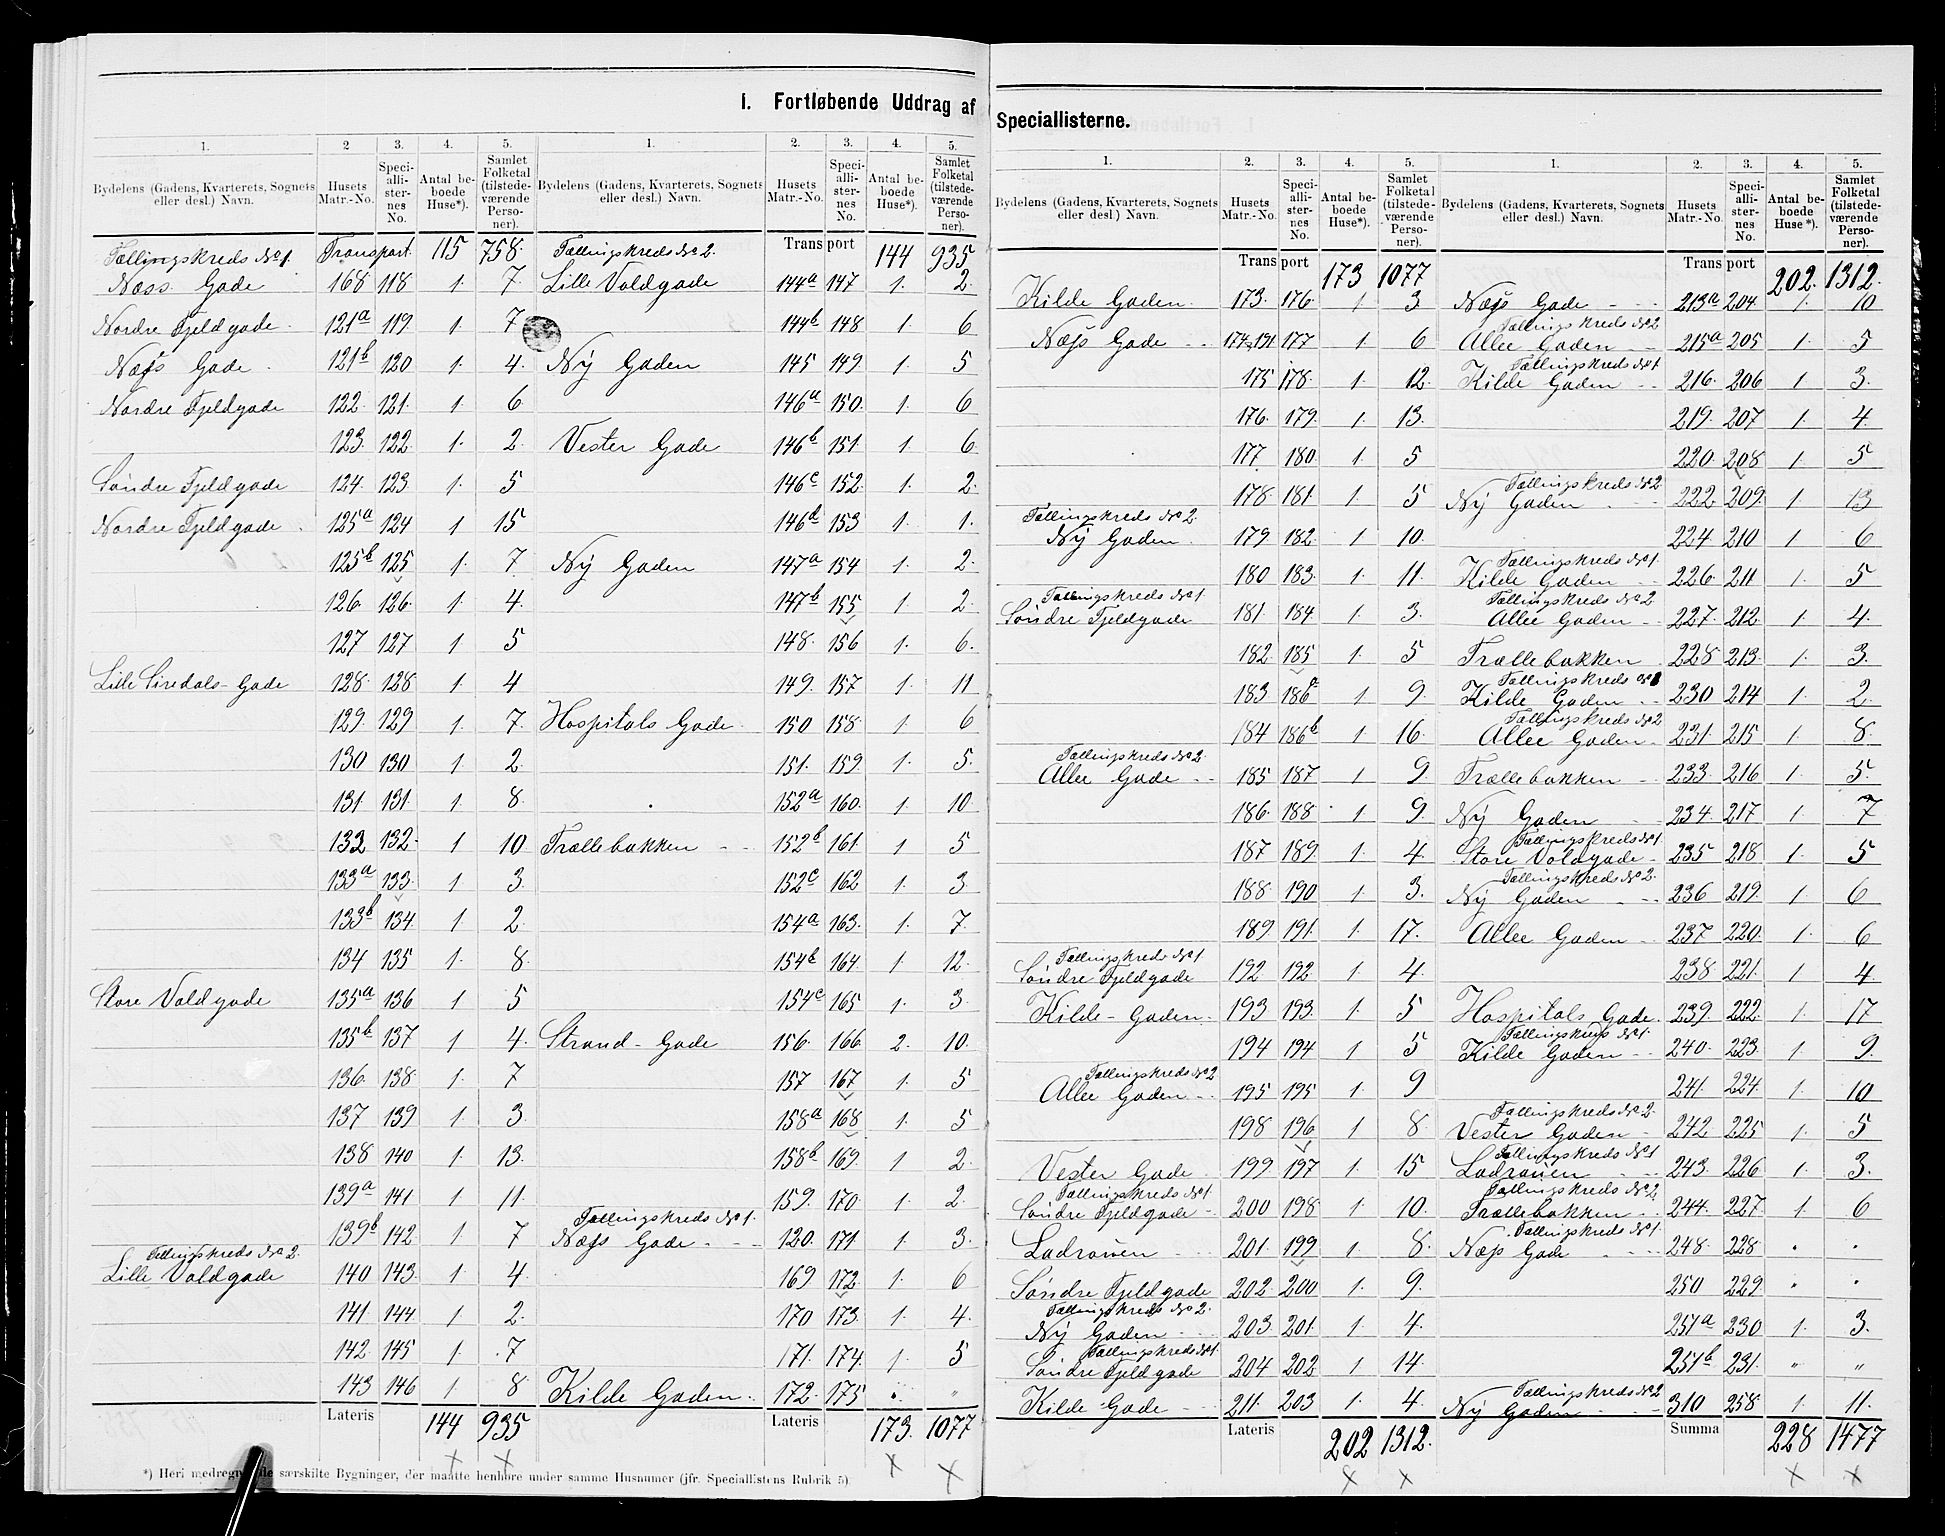 I. Fortløbende Uddrag af Speciallisterne.
1. 2 3. 4. 5. 1. 2. 3. 4. 5.
Bydelens (Gadens, Kvarterets, Sognets eller desl.) Navn. Husets Matr.-No. Speciallisternes No. Antal beboede Huse*). Samlet Folketal (tilstedeværende Personer). Bydelens (Gadens, Kvarterets, Sognets eller desl.) Navn. Husets Matr.-No. Speciallisternes No. Antal beboede Huse*). Samlet Folketal (tilstedeværende Personer).
Tællingskreds No 1. Transport. 115 758.
Næss Gade 168 118 1. 7
Nordre Fjeldgade 121a 119 1 7
Næss Gade 121b 120 1. 4.
Nordre Fjeldgade 122. 121. 1 6
123 122 1. 2.
Søndre Fjeldgade 124. 123. 1. 5
Nordre Fjeldgade 125a 124 1 15
125b 125 1. 7
126. 126. 1. 4.
127 127 1 5
Lille Siredals-Gade 128. 128 1 4
129. 129 1. 7.
130 130 1 2.
131. 131. 1. 8.
132 132. 1 10
133a 133. 1 3.
133b 134 1 2
134 135 1. 8.
Store Voldgade 135a 136 1 5
135b 137 1 4.
136. 138. 1. 7
137 139 1 3.
138 140 1. 13.
139a 141 1 11.
139b 142 1 7
Tællingskreds No 2.
Lille Voldgade 140 143. 1 4
141. 144 1 2.
142. 145 1. 7
143 146 1 8
Lateris 144 935
Tællingskreds No 2. Transport 144 935
Lille Voldgade 144a 147 1. 2.
144b 148 1. 6
Ny Gaden 145 149. 1. 5
146a 150. 1. 6
Vester Gade 146b 151. 1 6
146c 152. 1. 2.
146d 153 1. 1.
Ny Gaden 147a 154 1. 2.
147b 155 1 2
148. 156 1. 6.
149. 157 1. 11
Hospitals Gade 150 158. 1 6
151. 159. 1. 5.
152a 160. 1 10
Trællebakken 152b 161. 1 5
152c 162 1. 3
154a 163. 1. 7
154b 164. 1 12.
154c 165 1. 3.
Strand-Gade 156. 166 2. 10.
157 167 1. 5
158a 168 1. 5
158b 169. 1 2.
159. 170 1 2.
Tællingskreds No 1.
Næss Gade 120. 171 1. 3.
169 172 1. 6
170 173. 1 4.
171. 174. 1. 5
Kilde Gaden. 172. 175 " "
Lateris 173. 1077
*) Heri medregn særskilte Bygninger, der maatte henhøre under samme Husnumer (jfr. Speciallistens Rubrik 5).
1. 2. 3. 4. 5. 1. 2. 3. 4. 5.
Bydelens (Gadens, Kvarterets, Sognets eller desl.) Navn. Husets Matr.-No. Speciallisternes No. Antal beboede Huse*). Samlet Folketal (tilstedeværende Personer). Bydelens (Gadens, Kvarterets, Sognets eller desl.) Navn. Husets Matr.-No. Speciallisternes No. Antal beboede Huse*). Samlet Folketal (tilstedeværende Personer).
Transport 173 1077
Kilde Gaden. 173. 176. 1 3
Næss Gade 177 1 6
175 178. 1. 12.
176. 179. 1. 13.
177. 180. 1. 5
178. 181. 1. 5
Tællingskreds No 2.
Ny Gaden. 179 182. 1 10.
180 183. 1. 11.
Tællingskreds No 1.
Søndre Fjeldgade 181. 184 1. 3.
182. 185 1. 5
183 186a 1 9.
184 186b 1 16.
Tællingskreds No 2.
Allee Gade 185 187 1 9.
186. 188. 1 9.
187 189 1. 4.
188. 190 1. 3.
189 191. 1. 17.
Tællingskreds No 1.
Søndre Fjeldgade 192. 192 1. 4.
Kilde-Gaden. 193 193. 1. 5
194 194 1 5
Tællingskreds No 2
Allee Gaden 195 195 1. 9
198 196 1 8.
Vester Gade 199 197 1. 15
Tællingskreds No 1.
Søndre Fjeldgade 200 198. 1. 10.
Ladrauen 201. 199 1. 8.
Søndre Fjeldgade 202. 200 1. 9.
Tællingskreds No 2.
Ny Gaden 203 201. 1. 4.
Tællingskreds No 1.
Søndre Fjeldgade 204 202 1 14.
Kilde-Gade 211. 203 1. 4.
Lateris 202 1312.
Transport 202. 1312.
Næss Gade 213a 204 1. 10
Tællingskreds No 2
Allee Gaden 215a 205 1. 5
Tællingskreds No 1
Kilde Gaden 216. 206 1 3.
219. 207 1 4.
220. 208 1. 5
Tællingskreds No 2
Ny Gaden 222. 209. 1 13
224. 210 1 6
Tællingskreds No 1.
Kilde Gaden 226. 211 1. 5
Tællingskreds No 2
Allee Gaden 227. 212. 1. 4.
Trællebakken 228. 213. 1. 3.
Tællingskreds No 1
Kilde Gaden 230 214 1 2.
Tællingskreds No 2
Allee Gaden. 231. 215 1 8.
Trællebakken 233. 216 1. 5.
Ny Gaden 234. 217 1 7
Tællingskreds No 1.
Store Voldgade 235 218 1. 5
Tællingskreds No 2.
Ny Gaden 236 219. 1. 6
Allee Gaden 237 220. 1. 6
238. 221. 1 4
Hospitals Gade 239. 222. 1. 17
Tællingskreds No 1.
Kilde Gaden 240. 223. 1. 9.
241. 224. 1 10
Tællingskreds No 2.
Vester Gaden 242. 225 1. 5
Tællingskreds No 1
Ladrauen 243. 226 1. 3.
Tællingskreds No 2.
Trællebakken 244. 227. 1 6
Tællingskreds No 1.
Næss Gade 248. 228. " "
250 229 " "
251a 230 1. 3.
251b 231. " "
Tællingskreds No 2
Ny Gaden 310 258. 1. 11.
Summa 228 1477